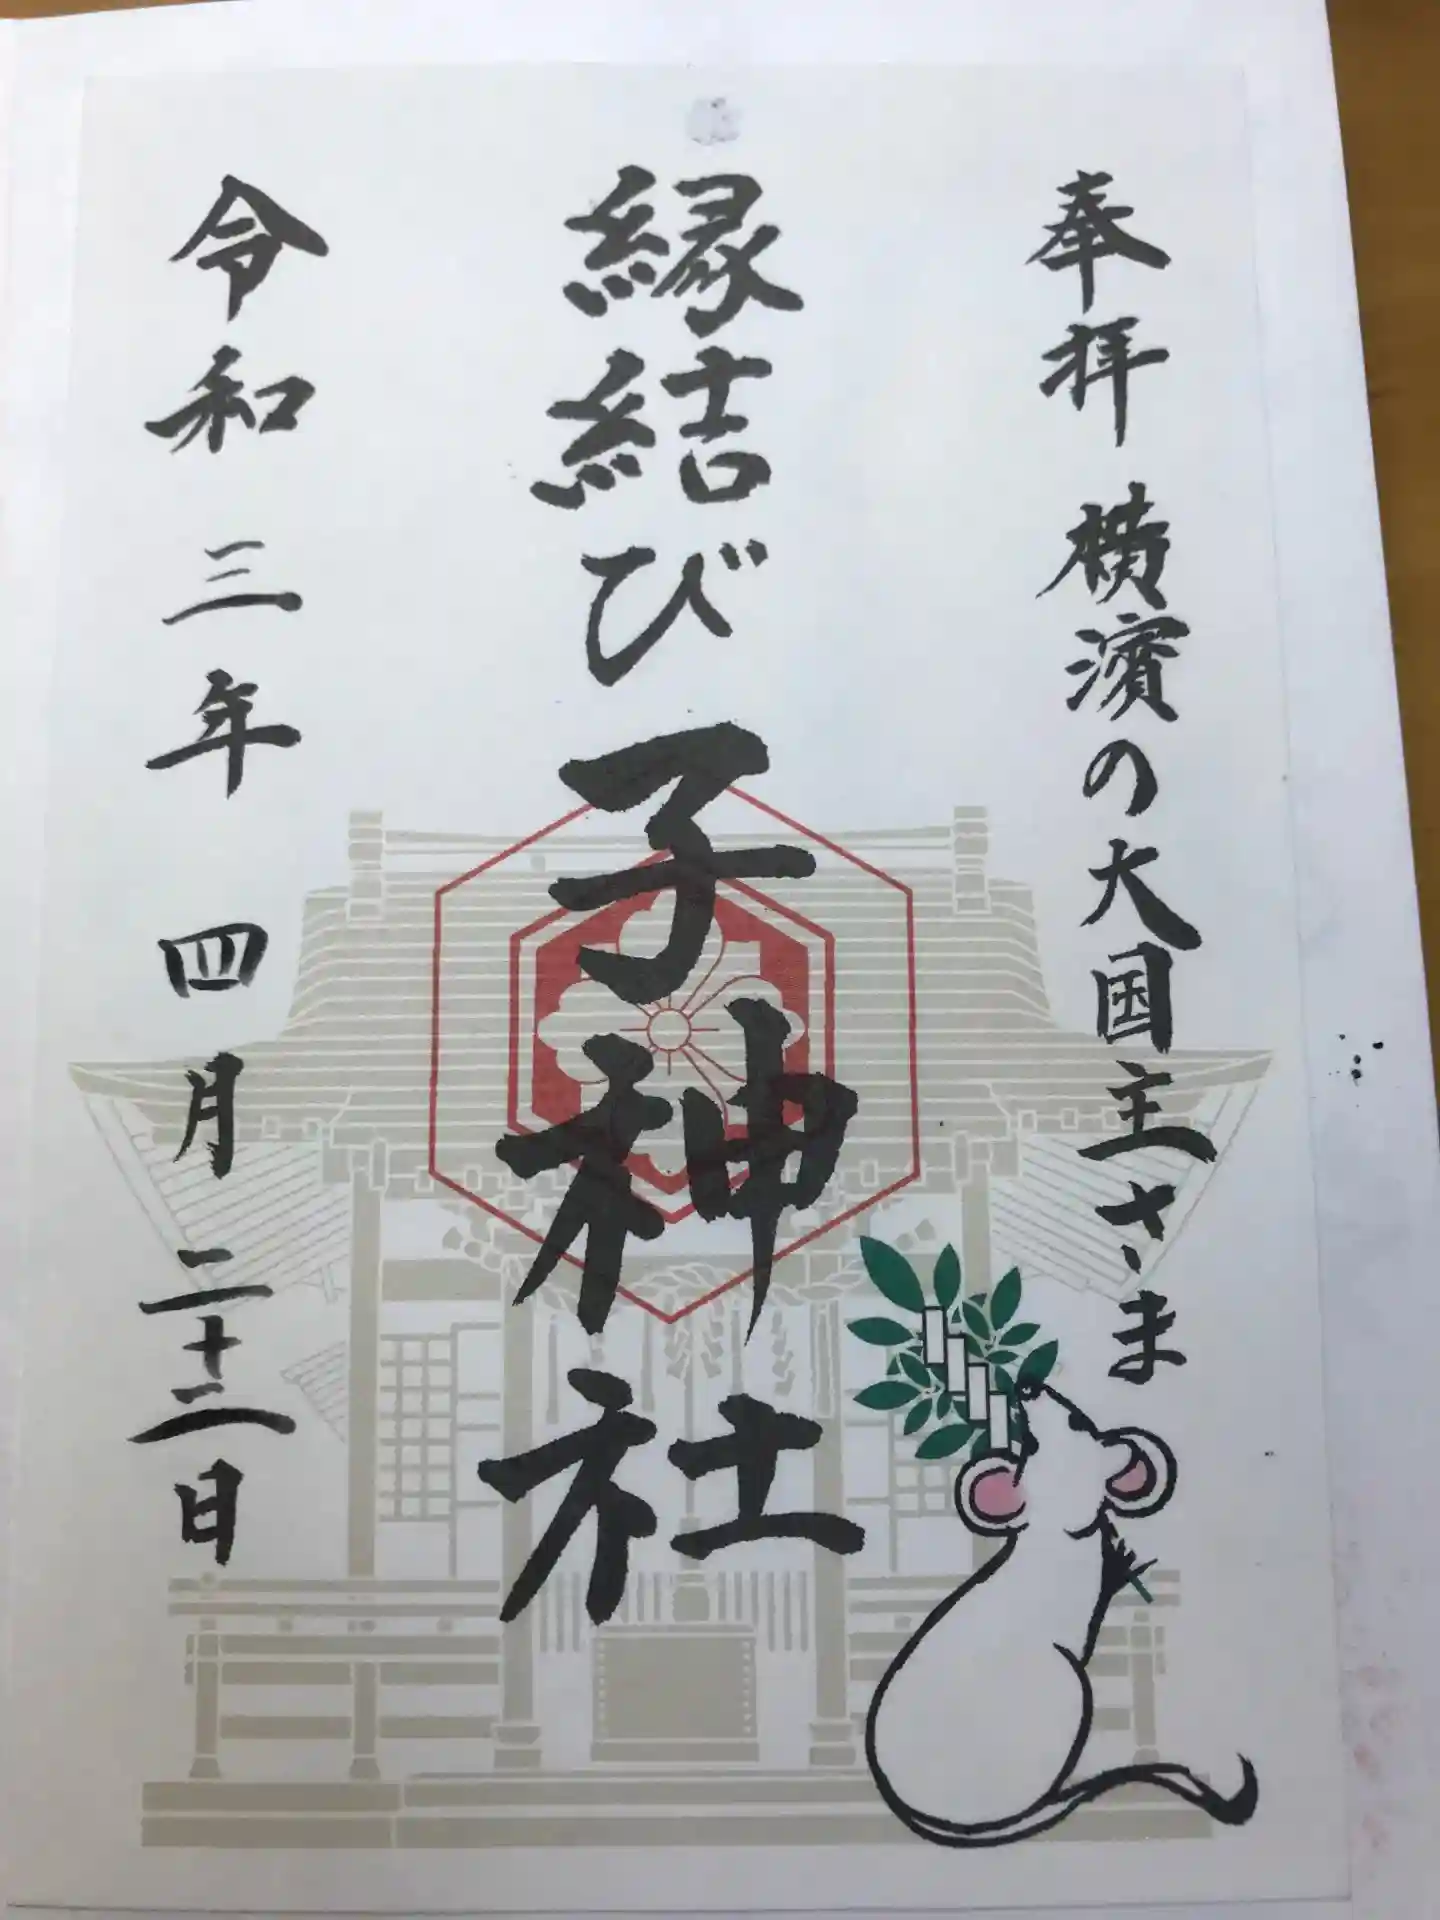 奉拝 横濱の大国主さま
縁結び 子神社
令和三年 四月二十二日